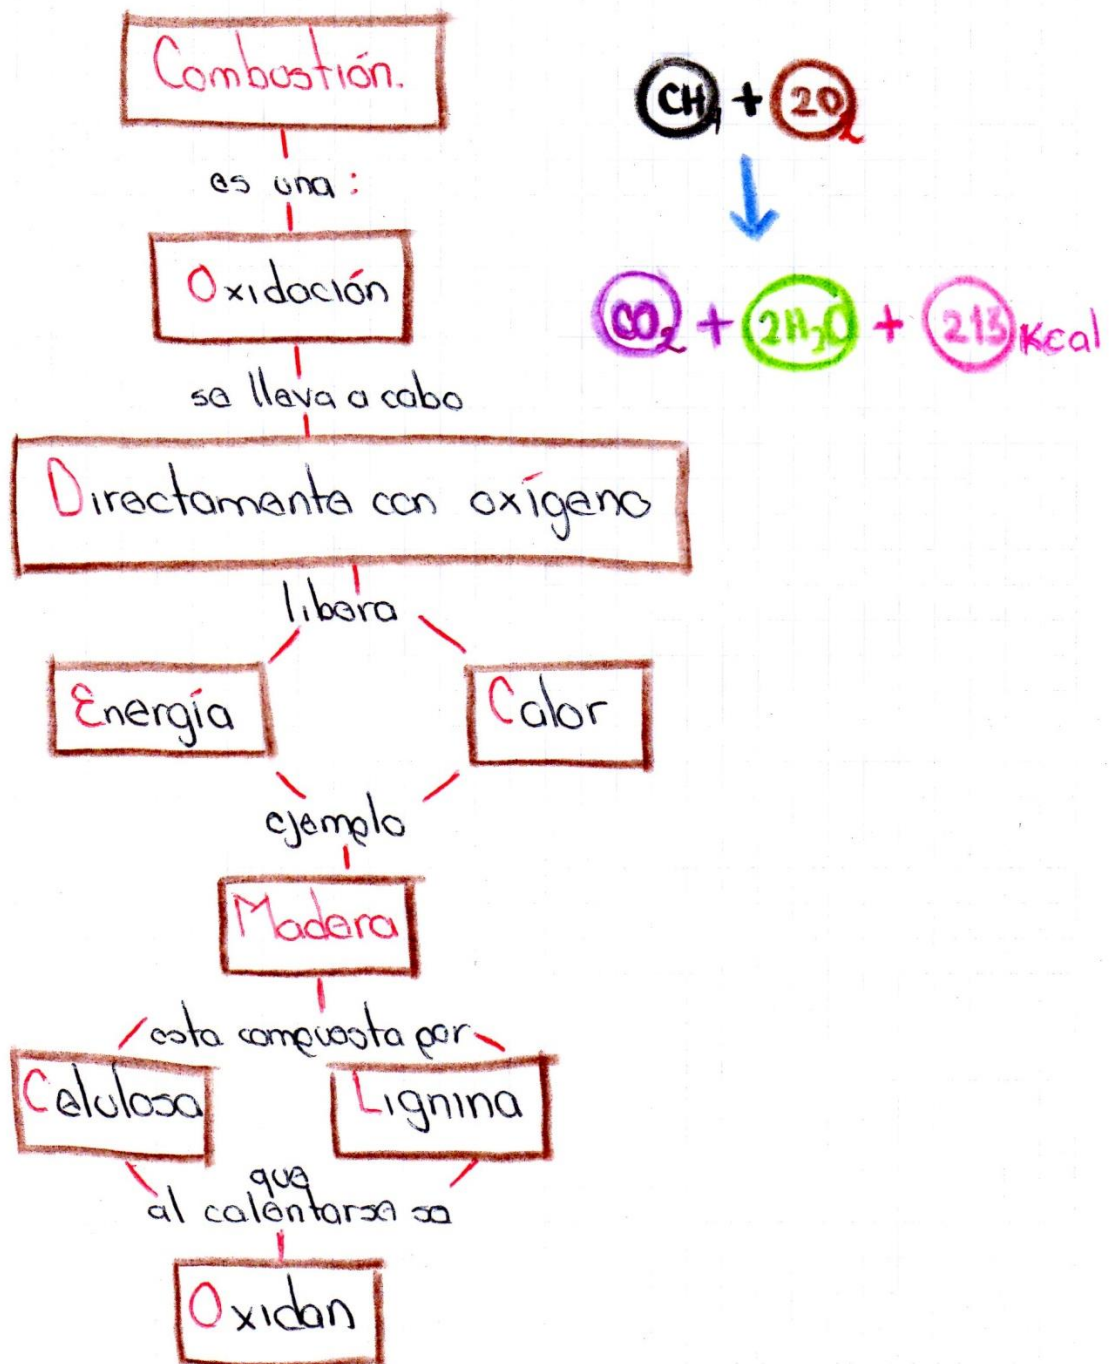 Combustión.
es una:
Oxidación
se lleva a cabo
Directamente con oxígeno
libera
Energía
Calor
ejemplo
Madera
esta compuesta por
Celulosa
Lignina
que
al calentarse se
Oxidan
CH4 + 2O2
CO2 + 2H2O + 213 Kcal